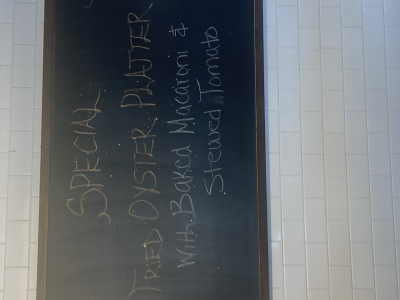 SPECIAL
FRIED OYSTER PLATTER
With Baked Macaroni &
Stewed Tomato